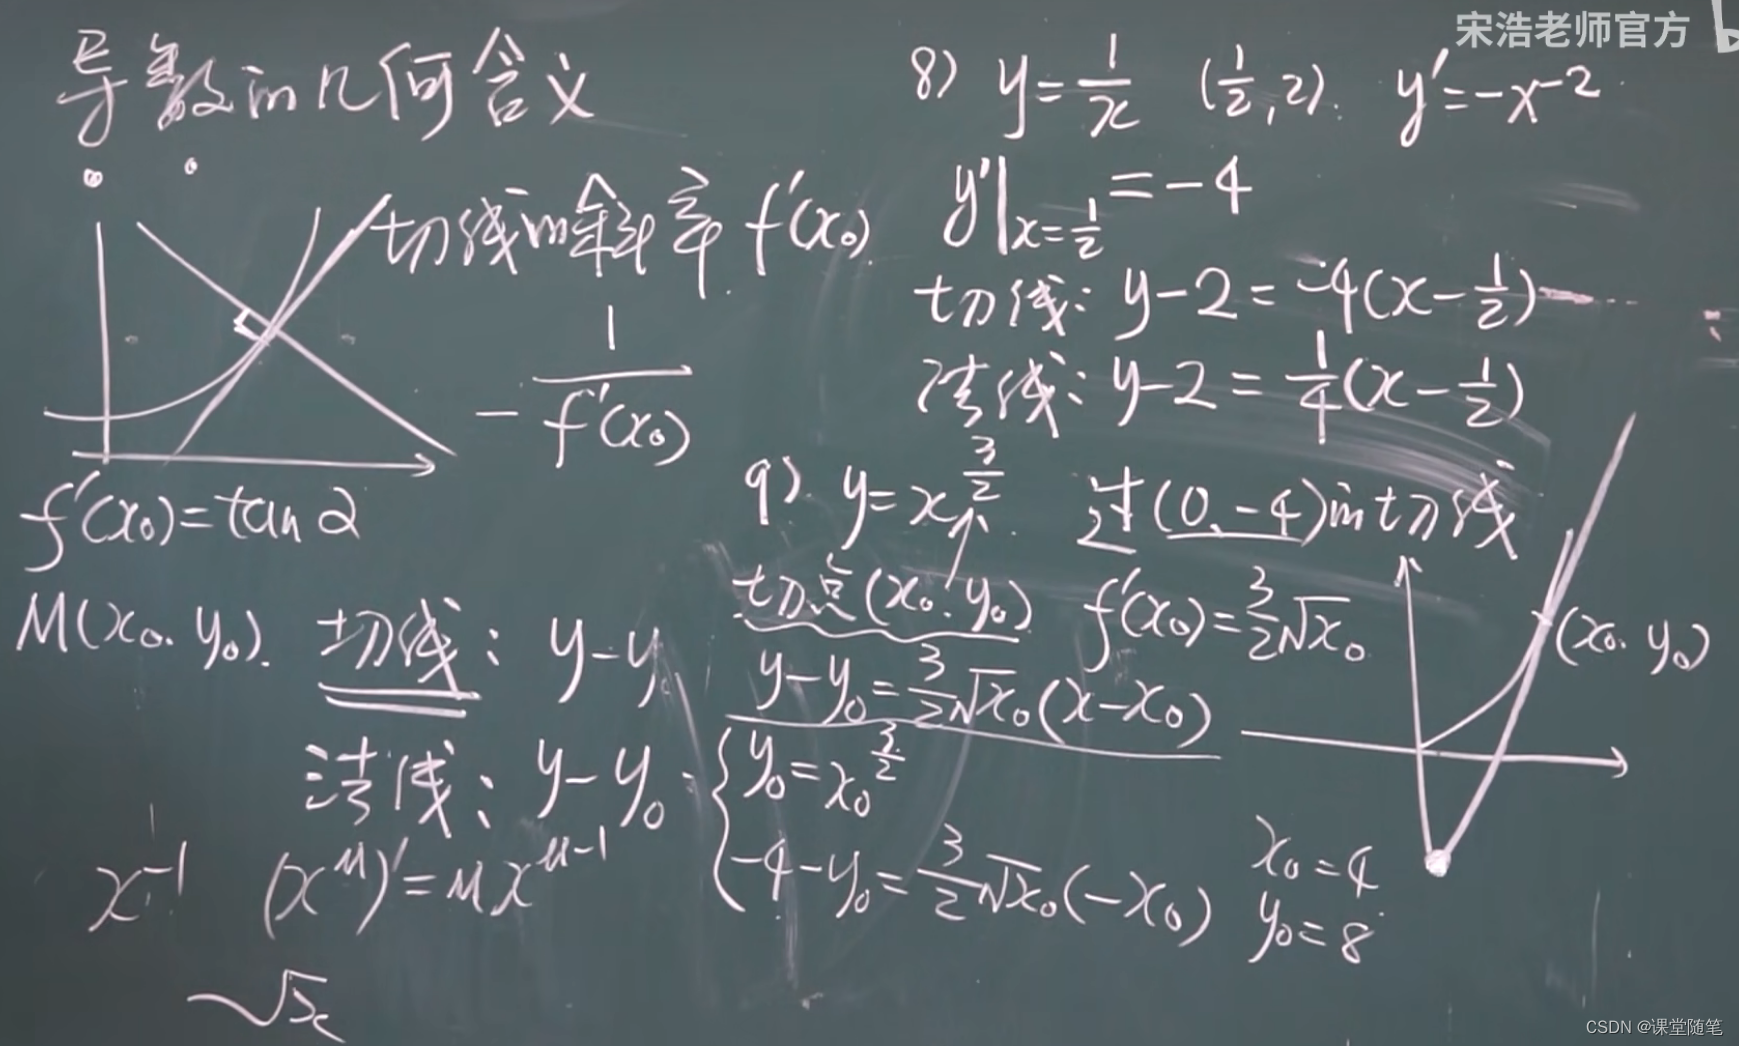 宋浩老师官方
导数的几何含义
切线的斜率 f'(x₀)
-1/f'(x₀)
f'(x₀)=tan α
M(x₀.y₀). 切线: y-y
法线: y-y₀
x⁻¹ (x^μ)'=μx^(μ-1)
√x
8) y=1/x (1/2,2). y'=-x⁻²
y'|x=1/2 =-4
切线: y-2=-4(x-1/2)
法线: y-2=1/4(x-1/2)
9). y=x^(3/2). 过(0.-4)的切线
切点(x₀.y₀) f'(x₀)=3/2√x₀
y-y₀=3/2√x₀(x-x₀)
{y₀=x₀^(3/2)
-4-y₀=3/2√x₀(-x₀)
x₀=4
y₀=8
(x₀.y₀)
CSDN @课堂随笔